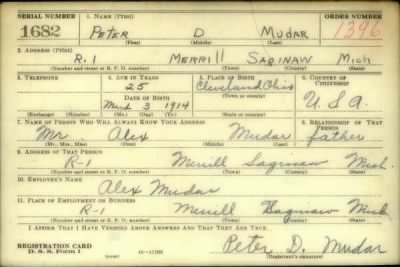 SERIAL NUMBER 1. NAME (Print) ORDER NUMBER
1682 PETER D MUDAR 1396
(First) (Middle) (Last)
2. ADDRESS (Print)
R-1 MERRILL SAGINAW Mich
(Number and street or R. F. D. number) (Town) (County) (State)
3. TELEPHONE 4. AGE IN YEARS 5. PLACE OF BIRTH 6. COUNTRY OF CITIZENSHIP
25 Cleveland Ohio
DATE OF BIRTH (Town or county) U.S.A.
3 1914
(Exchange) (Number) (Mo.) (Day) (Yr.) (State or country)
7. NAME OF PERSON WHO WILL ALWAYS KNOW YOUR ADDRESS 8. RELATIONSHIP OF THAT PERSON
Mr Alex Mudar father
(Mr., Mrs., Miss) (First) (Middle) (Last)
9. ADDRESS OF THAT PERSON
R-1 Merrill Saginaw Mich.
(Number and street or R. F. D. number) (Town) (County) (State)
10. EMPLOYER'S NAME
Alex Mudar
11. PLACE OF EMPLOYMENT OR BUSINESS
R-1 Merrill Saginaw Mich
(Number and street or R. F. D. number) (Town) (County) (State)
I AFFIRM THAT I HAVE VERIFIED ABOVE ANSWERS AND THAT THEY ARE TRUE.
REGISTRATION CARD
D. S. S. Form 1 Peter D. Mudar